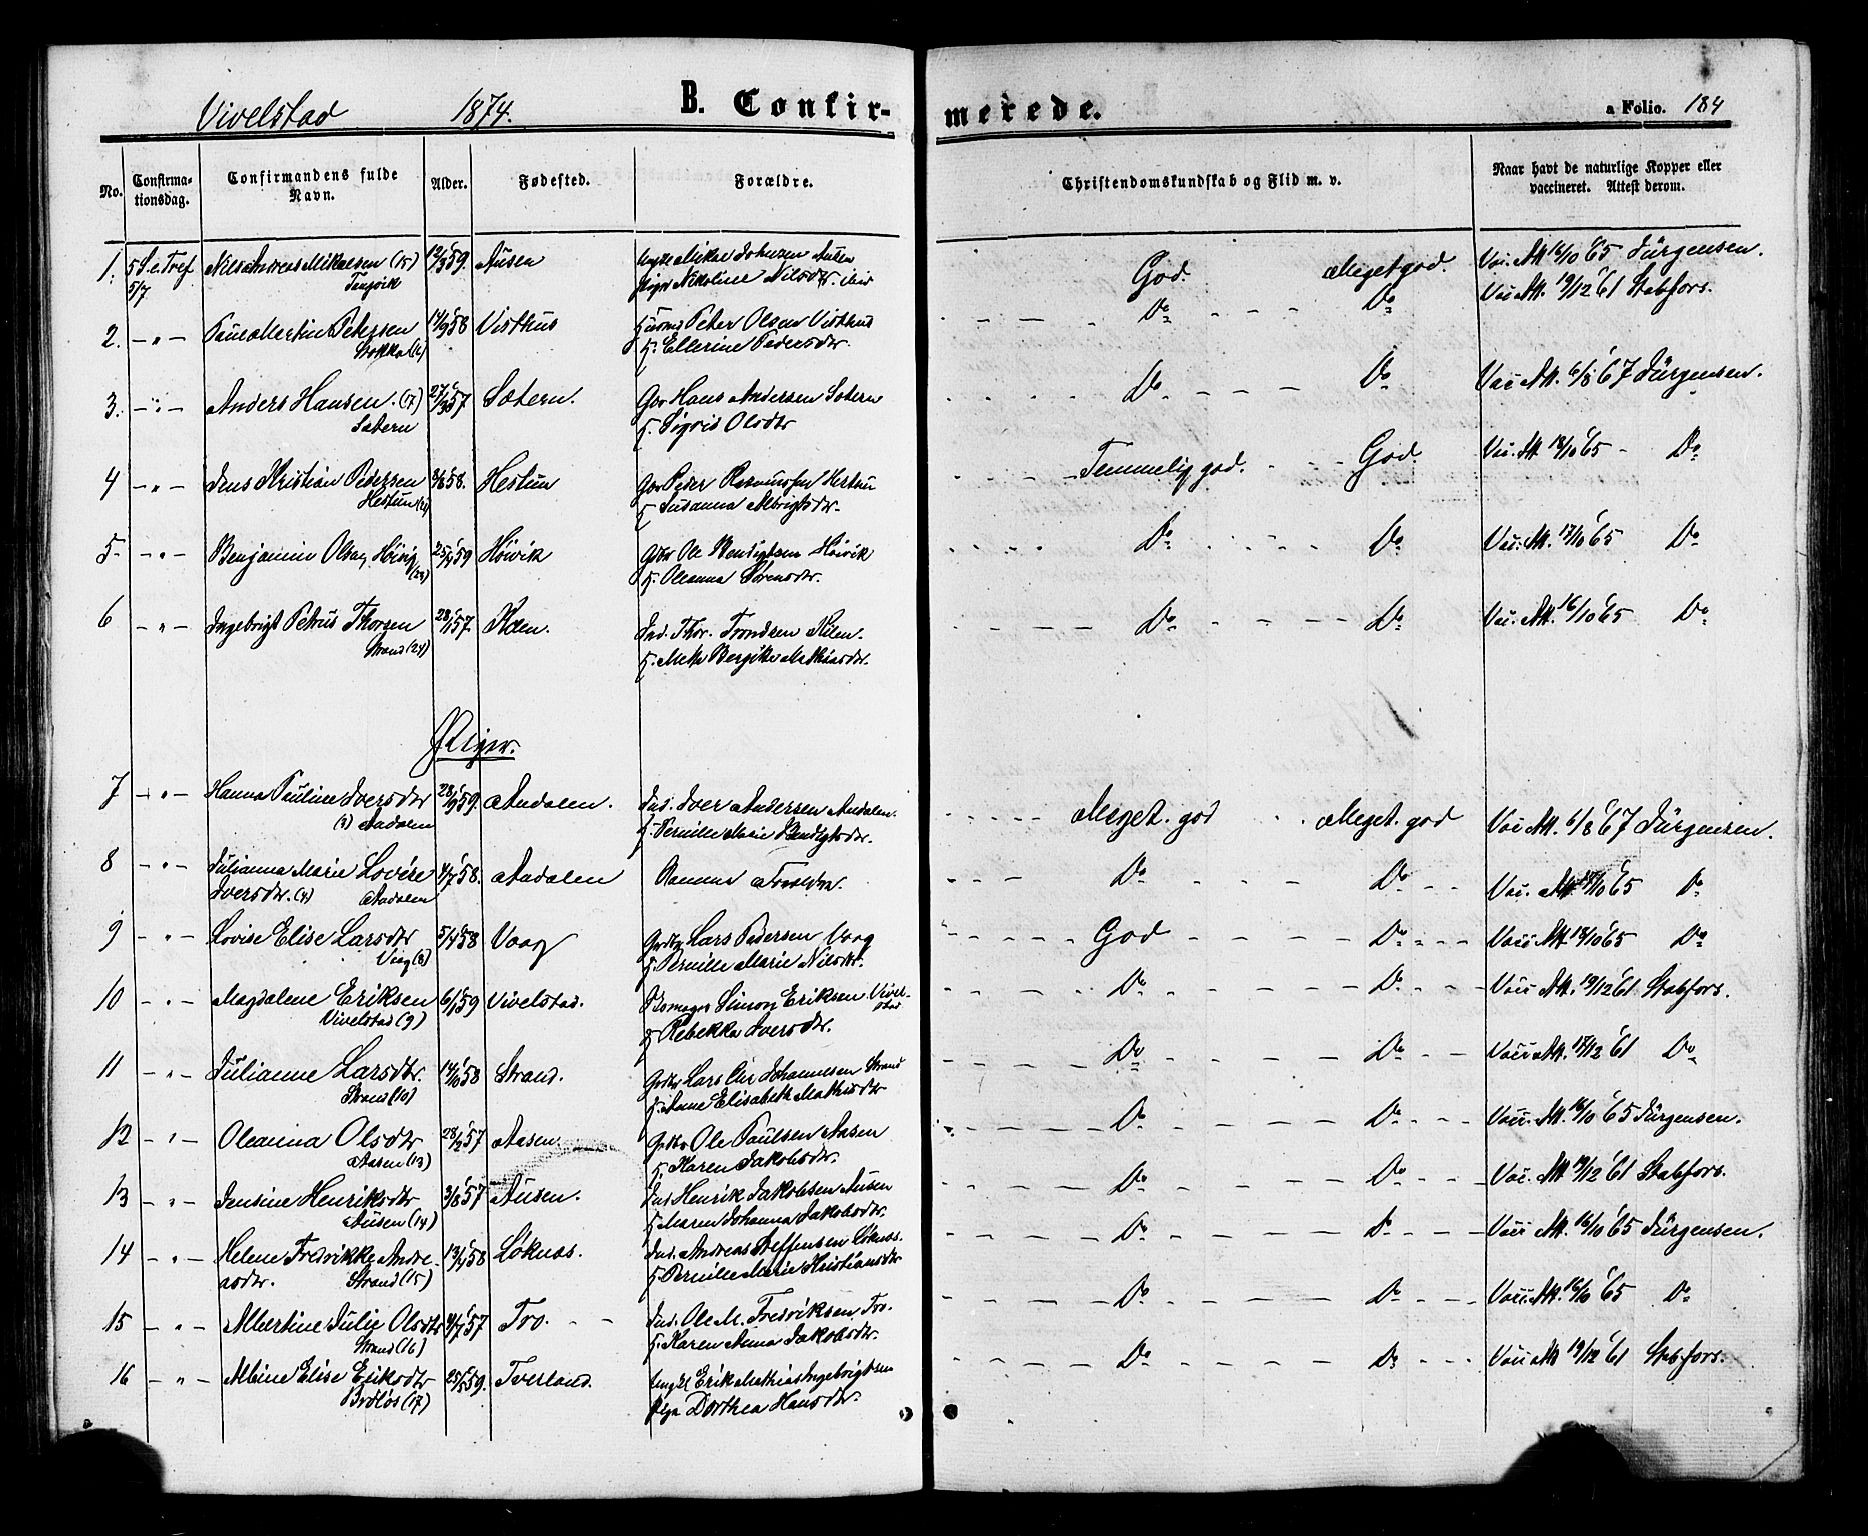 Vivelstad 1874. B. Confirmerede. a Folio. 184
No. Confirmationsdag. Confirmandens fulde Navn. Alder. Fødested. Forældre. Christendomskundskab og Flid m. v. Naar havt de naturlige Kopper eller vaccineret. Attest derom.
1. 5 S. e. Tref 5/7 Nils Andreas Mikalsen (15) '59. Ausen Nikoline Nilsdtr. God. Meget god. Vac. Att. 16/10 65 Jürgensen.
2. - " - Martin Petersen 58 Visthus Peter Olsen Visthus Do Do Vac Att. 19/12 61 Stabfors.
Ellerine Pedersdtr.
3. - " - Anders Hansen. (17) 57 Sætern. Gbr Hans Andersen Sætern Do Do Vac Att. 6/8 67 Jürgensen.
Sætern K. Sigris Olsdtr
4 - " - Jens Kristian Pedersen 58. Hestun Gbr Peder Hestun Temmelig god. God. Vac. Att. 18/10 65 Do
Hestun K Susanna Albrigtsdtr.
5. - " - Benjamin Olsen, 25/4 59 Høivik Ole Bendigtsen Høivik Do Do Vac. Att. 17/10 65 Do
K. Oleanna Sørensdtr.
6 - " - Ingebrigt Petrus Thorsen 28/1 57. Ind. Thor. Trondsen Do Do Vac. Att. 16/10 65 Do
Strand (24) K. Mette Bergitte
Piger.
7 - " - Hanna Pauline Iversdtr 28/9 59 Aadalen. Ind. Iver Andersen Aadalen. Meget. god Meget. god Vac Att. 6/8 67 Jürgensen.
(3) Aadalen K. Pernille Marie Bendigtsdtr.
8 - " - Julianna Marie Lovise 4/7 58. Aadalen Samme Forældre. Do Do Vac. Att. 65 Do
Iversdtr. (4) Aadalen
9 - " - Lovise Elise Larsdtr 5/4 58 Vaag Lars Pedersen Vaag God Do Vacc Att. 18/10 65 Do
Vaag (8) K. Pernille Marie Nilsdtr.
10 - " - Magdalene Eriksen 6/1 59 Vivelstad. Simon Eriksen Vivelstad Do Do Vacc Att. 19/12 61 Stabfors.
Vivelstad (9) K Rebekka Iversdtr.
11 - " - Julianne Larsdtr. 14/10 58 Strand. Lars Johannesen Strand Do Do Vacc Att. 61 Do
Strand (10) K. Anne Elisabeth Mathisdtr
12 - " - Oleanna Olsdtr 28/2 57 Aasen. Ole Paulsen Aasen Do Do Vacc. Att. 16/10 65 Jürgensen.
Aasen (13) K Karen Jakobsdtr.
13 - " - Jensine Henriksdtr 3/8 57 Ausen. Ind Henrik Jakobsen Ausen Do Do Vac. Att 19/12 61 Stabfors.
Ausen (14) K Maren Johanna Jakobsdtr.
14 - " - Helene Fredrikke Andre- 13/4 58 Løknæs. Ind. Andreas Steffensen Løknæs. Do Do Vacc Att. 16/10 65 Jürgensen.
asdtr. Strand (15) K Pernille Marie Kristiansdtr
15 - " - Albertine Julie Olsdtr 57 Tro. Ind. Ole M. Fredriksen Tro. Do Do Vacc. Att. 16/10 65 Do
Strand (16) K. Karen Anna Jakobsdtr.
16 - " - Albine Elise Eriksdtr 25/5 59. Tverland. Ungkl Erik Mathias Ingebrigtsen Do Do Vacc Att 19/12 61 Stabfors.
Brøløs (17) Pige Dorthea Hansdtr.